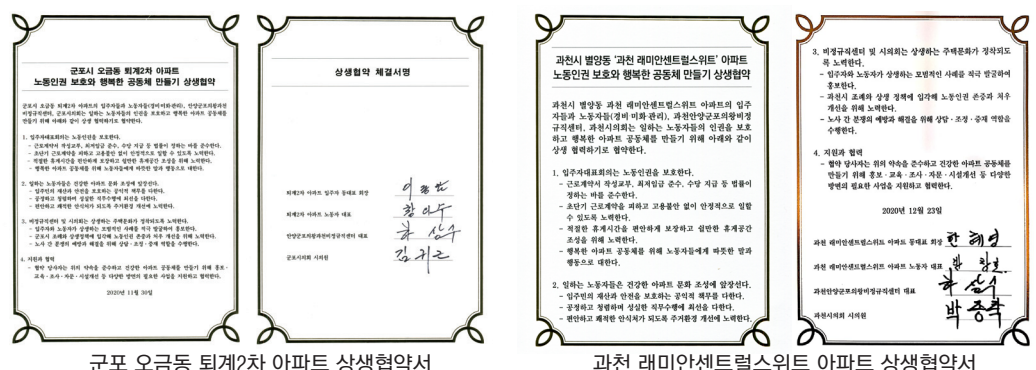 군포시 오금동 퇴계2차 아파트
노동인권 보호와 행복한 공동체 만들기 상생협약
군포시 오금동 퇴계2차 아파트의 입주자들과 노동자들(경비미화관리), 안양군포의왕과천
비정규직센터, 군포시의회는 일하는 노동자들의 인권을 보호하고 행복한 아파트 공동체를
만들기 위해 아래와 같이 상생 협력하기로 협약한다.
1. 입주자대표회의는 노동인권을 보호한다.
- 근로계약서 작성교부, 최저임금 준수, 수당 지급 등 법률이 정하는 바를 준수한다.
- 초단기 근로계약을 피하고 고용불안 없이 안정적으로 일할 수 있도록 노력한다.
- 적절한 휴게시간을 편안하게 보장하고 일만한 휴게공간 조성을 위해 노력한다.
- 행복한 아파트 공동체를 위해 노동자들에게 따뜻한 말과 행동으로 대한다.
2. 일하는 노동자들은 건강한 아파트 문화 조성에 앞장선다.
- 입주민의 재산과 안전을 보호하는 공익적 책무를 다한다.
- 공정하고 청렴하며 성실한 직무수행에 최선을 다한다.
- 편안하고 쾌적한 안식처가 되도록 주거환경 개선에 노력한다.
3. 비정규직센터 및 시의회는 상생하는 주택문화가 정착되도록 노력한다.
- 입주자와 노동자가 상생하는 모범적인 사례를 적극 발굴하여 홍보한다.
- 군포시 조례와 상생정책에 입각해 노동인권 존중과 처우 개선을 위해 노력한다.
- 노사 간 분쟁의 예방과 해결을 위해 상담·조정·중재 역할을 수행한다.
4. 지원과 협력
- 협약 당사자는 위의 약속을 준수하고 건강한 아파트 공동체를 만들기 위해 홍보·
교육·조사·자문·시설개선 등 다양한 방면의 필요한 사업을 지원하고 협력한다.
2020년 11월 30일
상생협약 체결서명
퇴계2차 아파트 입주자 동대표 회장
퇴계2차 아파트 노동자 대표
안양군포의왕과천비정규직센터 대표 하상수
군포시의회 시의원
군포 오금동 퇴계2차 아파트 상생협약서
과천시 별양동 '과천 래미안센트럴스위트' 아파트
노동인권 보호와 행복한 공동체 만들기 상생협약
과천시 별양동 과천 래미안센트럴스위트 아파트의 입주
자들과 노동자들(경비 미화 관리), 과천안양군포의왕비정
규직센터, 과천시의회는 일하는 노동자들의 인권을 보호
하고 행복한 아파트 공동체를 만들기 위해 아래와 같이
상생 협력하기로 협약한다.
1. 입주자대표회의는 노동인권을 보호한다.
- 근로계약서 작성교부, 최저임금 준수, 수당 지급 등 법률이
정하는 바를 준수한다.
- 초단기 근로계약을 피하고 고용불안 없이 안정적으로 일할
수 있도록 노력한다.
- 적절한 휴게시간을 편안하게 보장하고 일만한 휴게공간
조성을 위해 노력한다.
- 행복한 아파트 공동체를 위해 노동자들에게 따뜻한 말과
행동으로 대한다.
2. 일하는 노동자들은 건강한 아파트 문화 조성에 앞장선다.
- 입주민의 재산과 안전을 보호하는 공익적 책무를 다한다.
- 공정하고 청렴하며 성실한 직무수행에 최선을 다한다.
- 편안하고 쾌적한 안식처가 되도록 주거환경 개선에 노력한다.
3. 비정규직센터 및 시의회는 상생하는 주택문화가 정착되도
록 노력한다.
- 입주자와 노동자가 상생하는 모범적인 사례를 적극 발굴하여
홍보한다.
- 과천시 조례와 상생 정책에 입각해 노동인권 존중과 처우
개선을 위해 노력한다.
- 노사 간 분쟁의 예방과 해결을 위해 상담·조정·중재 역할을
수행한다.
4. 지원과 협력
- 협약 당사자는 위의 약속을 준수하고 건강한 아파트 공동체를
만들기 위해 홍보·교육·조사·자문·시설개선 등 다양한
방면의 필요한 사업을 지원하고 협력한다.
2020년 12월 23일
과천 래미안센트럴스위트 아파트 동대표 회장 한혜영
과천 래미안센트럴스위트 아파트 노동자 대표
과천안양군포의왕비정규직센터 대표 하상수
과천시의회 시의원 박종락
과천 래미안센트럴스위트 아파트 상생협약서